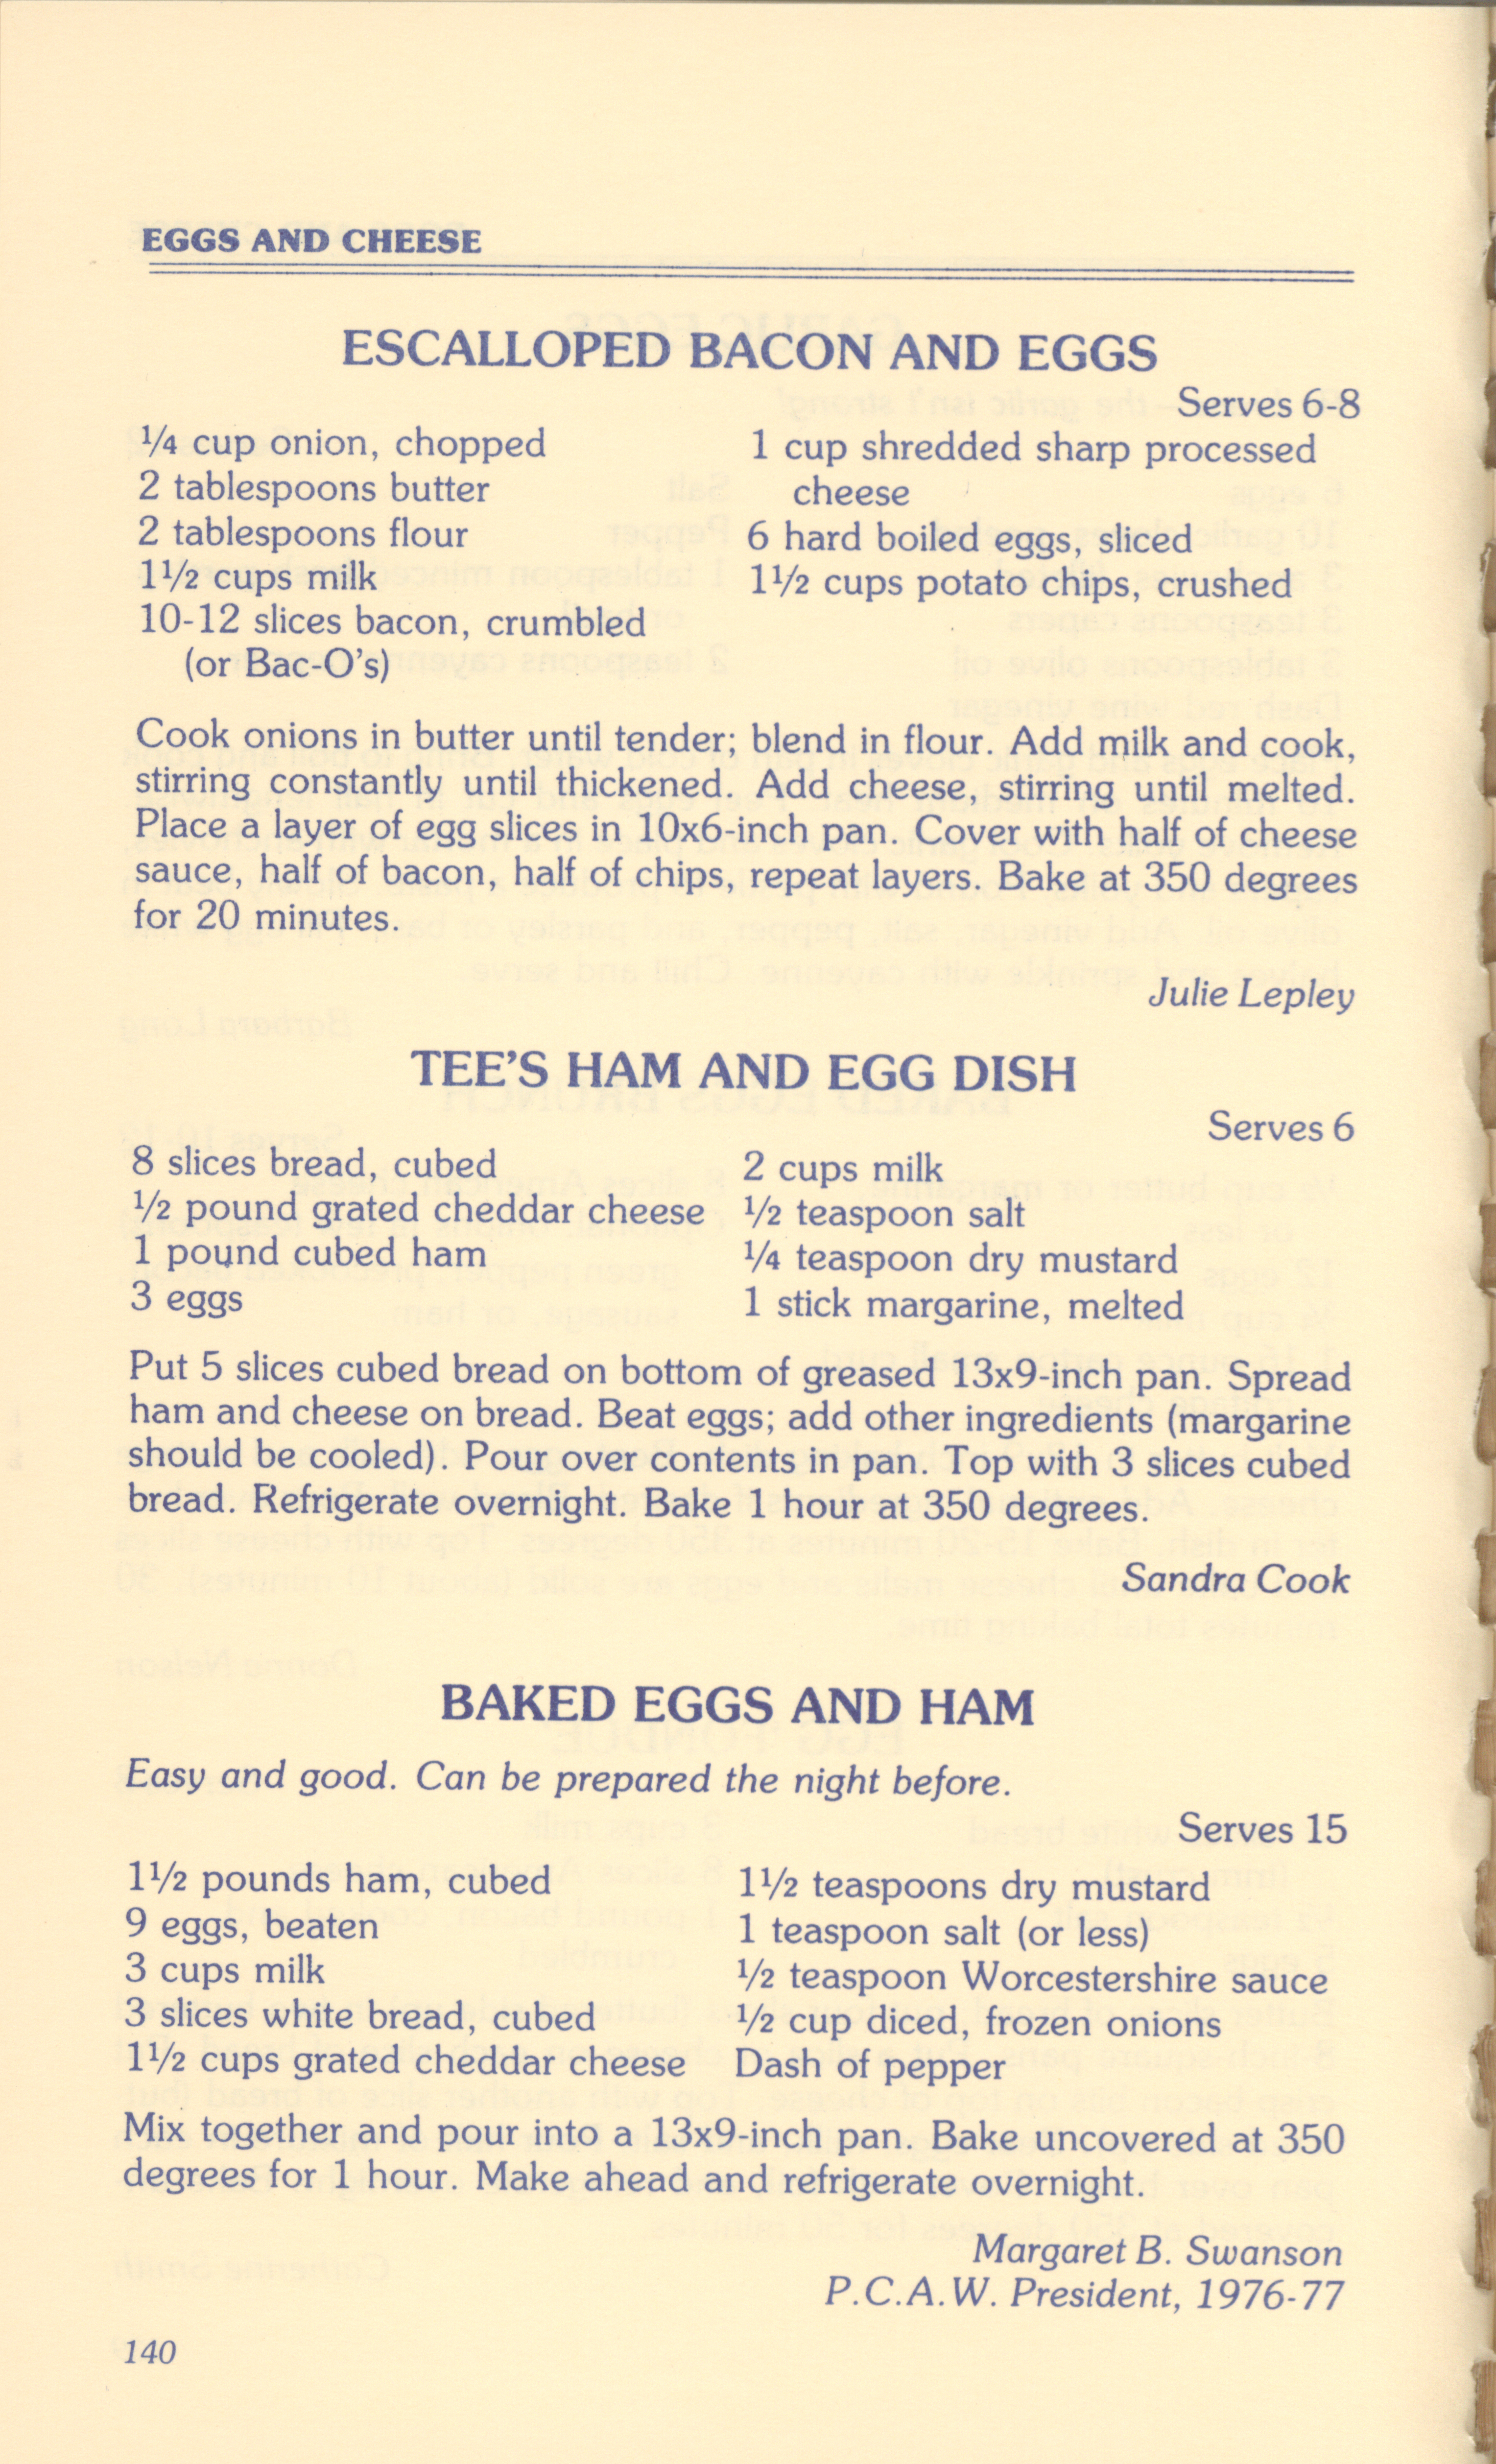 EGGS AND CHEESE
ESCALLOPED BACON AND EGGS
Serves 6-8
¼ cup onion, chopped
2 tablespoons butter
2 tablespoons flour
1½ cups milk
10-12 slices bacon, crumbled
(or Bac-O's)
1 cup shredded sharp processed
cheese
6 hard boiled eggs, sliced
1½ cups potato chips, crushed
Cook onions in butter until tender; blend in flour. Add milk and cook,
stirring constantly until thickened. Add cheese, stirring until melted.
Place a layer of egg slices in 10x6-inch pan. Cover with half of cheese
sauce, half of bacon, half of chips, repeat layers. Bake at 350 degrees
for 20 minutes.
Julie Lepley
TEE'S HAM AND EGG DISH
Serves 6
8 slices bread, cubed
½ pound grated cheddar cheese
1 pound cubed ham
3 eggs
2 cups milk
½ teaspoon salt
¼ teaspoon dry mustard
1 stick margarine, melted
Put 5 slices cubed bread on bottom of greased 13x9-inch pan. Spread
ham and cheese on bread. Beat eggs; add other ingredients (margarine
should be cooled). Pour over contents in pan. Top with 3 slices cubed
bread. Refrigerate overnight. Bake 1 hour at 350 degrees.
Sandra Cook
BAKED EGGS AND HAM
Easy and good. Can be prepared the night before.
Serves 15
1½ pounds ham, cubed
9 eggs, beaten
3 cups milk
3 slices white bread, cubed
1½ cups grated cheddar cheese
1½ teaspoons dry mustard
1 teaspoon salt (or less)
½ teaspoon Worcestershire sauce
½ cup diced, frozen onions
Dash of pepper
Mix together and pour into a 13x9-inch pan. Bake uncovered at 350
degrees for 1 hour. Make ahead and refrigerate overnight.
Margaret B. Swanson
P.C.A.W. President, 1976-77
140